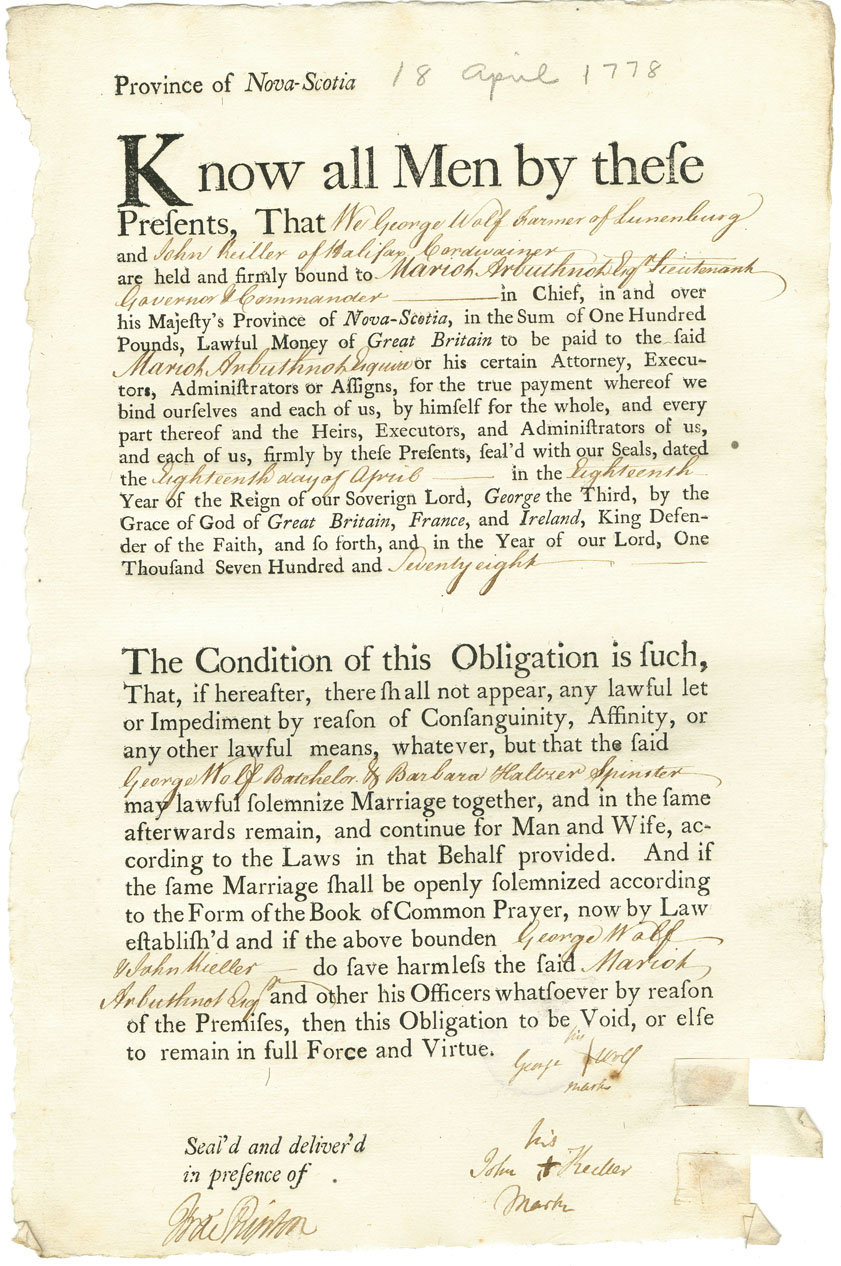 Province of Nova-Scotia 18 April 1778
Know all Men by theſe
Preſents, That We George Wolf Farmer of Lunenburg
and John Keiller of Halifax Cordwainer
are held and firmly bound to Mariot Arbuthnot Esqr. Lieutenant
Governor & Commander in Chief, in and over
his Majeſty's Province of Nova-Scotia, in the Sum of One Hundred
Pounds, Lawful Money of Great Britain to be paid to the ſaid
Mariot Arbuthnot Esquire or his certain Attorney, Execu-
tors, Adminiſtrators or Aſſigns, for the true payment whereof we
bind ourſelves and each of us, by himſelf for the whole, and every
part thereof and the Heirs, Executors, and Adminiſtrators of us,
and each of us, firmly by theſe Preſents, ſeal'd with our Seals, dated
the Eighteenth day of April in the Eighteenth
Year of the Reign of our Soverign Lord, George the Third, by the
Grace of God of Great Britain, France, and Ireland, King Defen-
der of the Faith, and ſo forth, and in the Year of our Lord, One
Thouſand Seven Hundred and Seventy eight
The Condition of this Obligation is ſuch,
That, if hereafter, there ſhall not appear, any lawful let
or Impediment by reaſon of Conſanguinity, Affinity, or
any other lawful means, whatever, but that the ſaid
George Wolf Batchelor & Barbara Haltzer Spinster
may lawful ſolemnize Marriage together, and in the ſame
afterwards remain, and continue for Man and Wife, ac-
cording to the Laws in that Behalf provided. And if
the ſame Marriage ſhall be openly ſolemnized according
to the Form of the Book of Common Prayer, now by Law
eſtabliſh'd and if the above bounden George Wolf
& John Kieller do ſave harmleſs the ſaid Mariot
Arbuthnot Esqr. and other his Officers whatſoever by reaſon
of the Premiſes, then this Obligation to be Void, or elſe
to remain in full Force and Virtue.
his
George Wolf
mark
Seal'd and deliver'd
in preſence of
his
John + Kieller
Mark